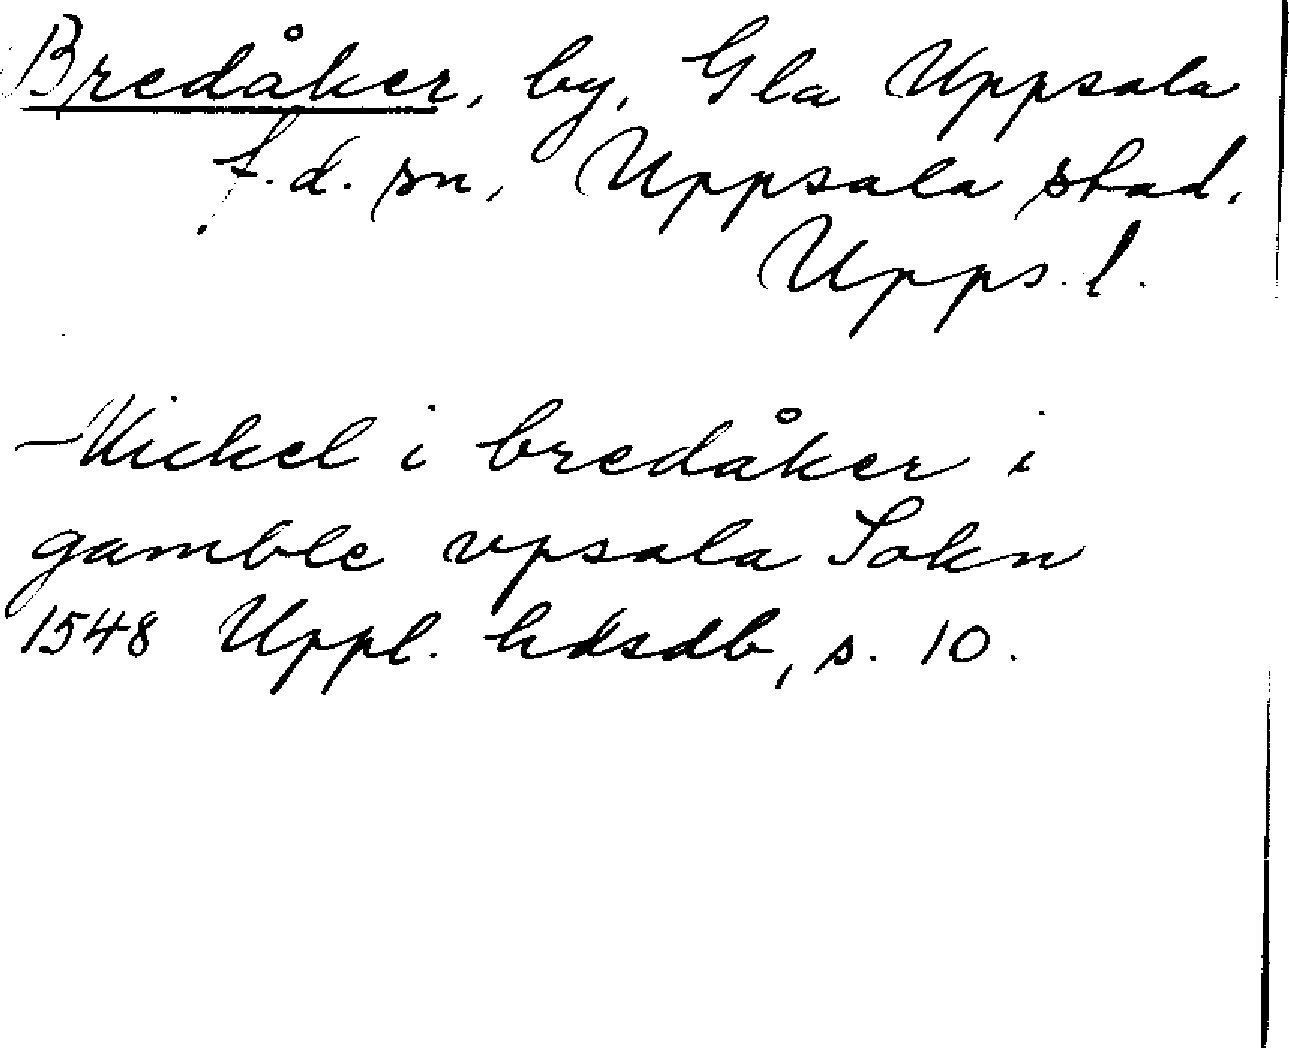 Bredåker, by, Gla Uppsala
f.d. sn, Uppsala stad.
Upps. l.
Mickel i bredåker i
gamble vpsala Sokn
1548 Uppl. hdsdb, s. 10.